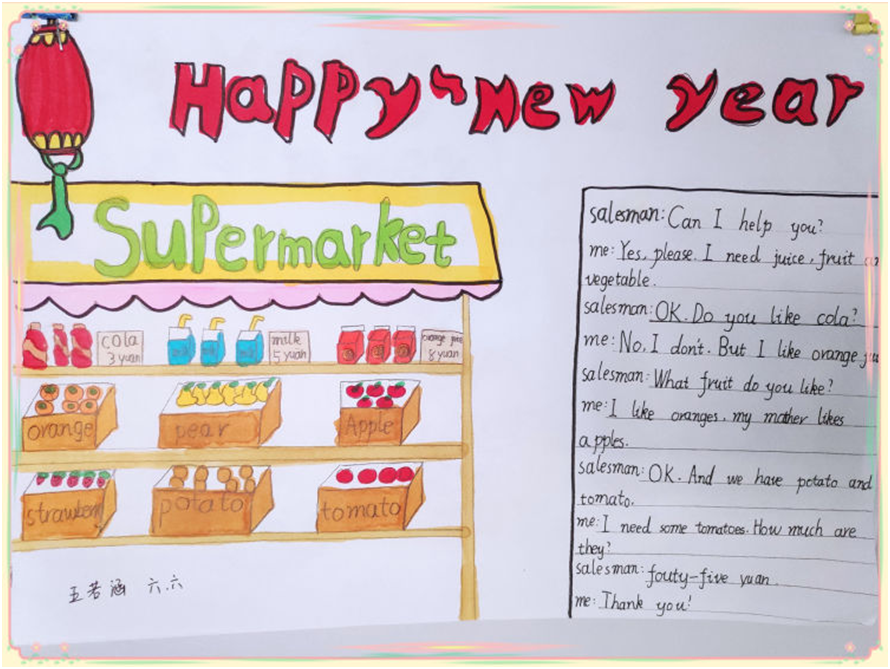 Happy New year
Supermarket
cola
3 yuan
milk
5 yuan
orange juice
8 yuan
orange
pear
Apple
strawberry
potato
tomato
王若涵 六.六
salesman: Can I help you?
me: Yes, please. I need juice, fruit an
vegetable.
salesman: OK. Do you like cola?
me: No, I don't. But I like orange ju
salesman: What fruit do you like?
me: I like oranges, my mather likes
apples.
salesman: OK. And we have potato and
tomato.
me: I need some tomatoes. How much are
they?
salesman: fouty-five yuan.
me: Thank you!